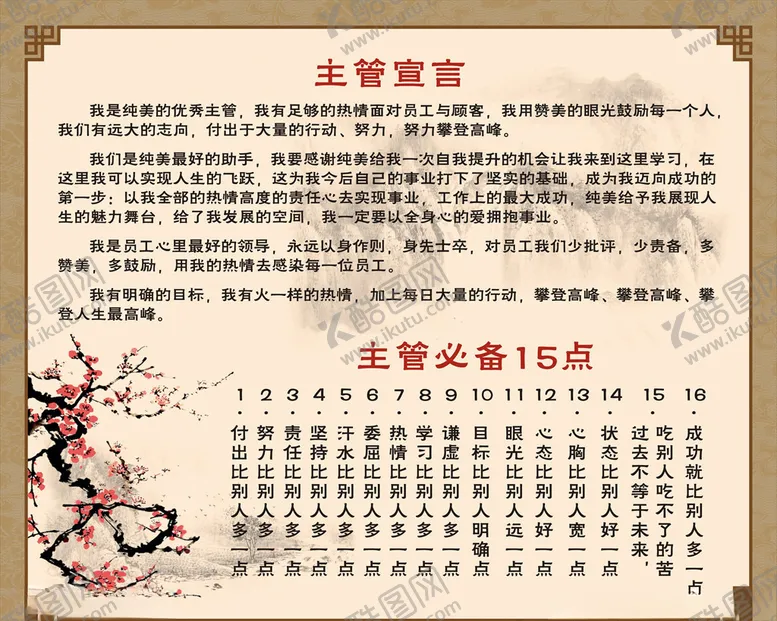 主管宣言
我是纯美的优秀主管，我有足够的热情面对员工与顾客，我用赞美的眼光鼓励每一个人，
我们有远大的志向，付出于大量的行动、努力，努力攀登高峰。
我们是纯美最好的助手，我要感谢纯美给我一次自我提升的机会让我来到这里学习，在
这里我可以实现人生的飞跃，这为我今后自己的事业打下了坚实的基础，成为我迈向成功的
第一步：以我全部的热情高度的责任心去实现事业，工作上的最大成功，纯美给予我展现人
生的魅力舞台，给了我发展的空间，我一定要以全身心的爱拥抱事业。
我是员工心里最好的领导，永远以身作则，身先士卒，对员工我们少批评，少责备，多
赞美，多鼓励，用我的热情去感染每一位员工。
我有明确的目标，我有火一样的热情，加上每日大量的行动，攀登高峰、攀登高峰、攀
登人生最高峰。
主管必备15点
1·付出比别人多一点
2·努力比别人多一点
3·责任比别人多一点
4·坚持比别人多一点
5·汗水比别人多一点
6·委屈比别人多一点
7·热情比别人多一点
8·学习比别人多一点
9·谦虚比别人多一点
10·目标比别人明确点
11·眼光比别人远一点
12·心态比别人好一点
13·心胸比别人宽一点
14·状态比别人好一点
15·吃别人吃不了的苦
过去不等于未来，
16·成功就比别人多一点
酷图网
www.ikutu.com